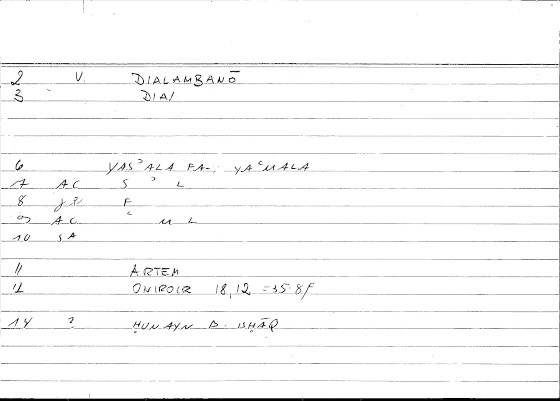 2 V. DIALAMBANŌ
3 DIA/
6 YAS˒ALA FA-; YAʿMALA
7 AC S ˒ L
8 F
9 AC ʿ M L
10 SA
11 ARTEM
12 ONIROCR 18,12 = 35.8f
14 ? ḤUNAYN B. ISḤĀQ